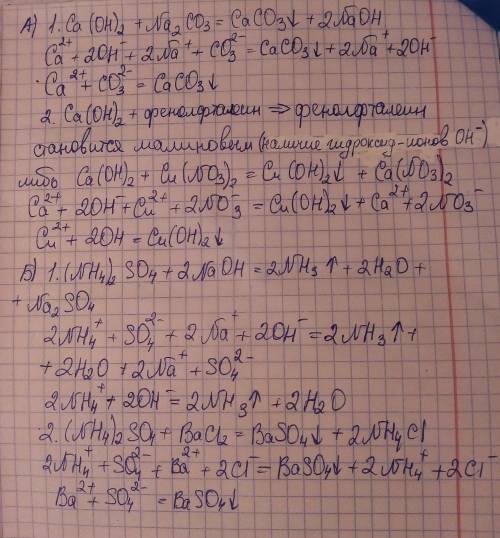 А) 1. Ca(OH)₂ + Na₂CO₃ = CaCO₃↓ + 2NaOH
Ca²⁺ + 2OH⁻ + 2Na⁺ + CO₃²⁻ = CaCO₃↓ + 2Na⁺ + 2OH⁻
Ca²⁺ + CO₃²⁻ = CaCO₃↓
2. Ca(OH)₂ + фенолфталеин ⇒ фенолфталеин
становится малиновым (наличие гидроксид-ионов OH⁻)
либо Ca(OH)₂ + Cu(NO₃)₂ = Cu(OH)₂↓ + Ca(NO₃)₂
Ca²⁺ + 2OH⁻ + Cu²⁺ + 2NO₃⁻ = Cu(OH)₂↓ + Ca²⁺ + 2NO₃⁻
Cu²⁺ + 2OH = Cu(OH)₂↓
Б) 1. (NH₄)₂SO₄ + 2NaOH = 2NH₃↑ + 2H₂O +
+ Na₂SO₄
2NH₄⁺ + SO₄²⁻ + 2Na⁺ + 2OH⁻ = 2NH₃↑ +
+ 2H₂O + 2Na⁺ + SO₄²⁻
2NH₄⁺ + 2OH⁻ = 2NH₃↑ + 2H₂O
2. (NH₄)₂SO₄ + BaCl₂ = BaSO₄↓ + 2NH₄Cl
2NH₄⁺ + SO₄²⁻ + Ba²⁺ + 2Cl⁻ = BaSO₄↓ + 2NH₄⁺ + 2Cl⁻
Ba²⁺ + SO₄²⁻ = BaSO₄↓